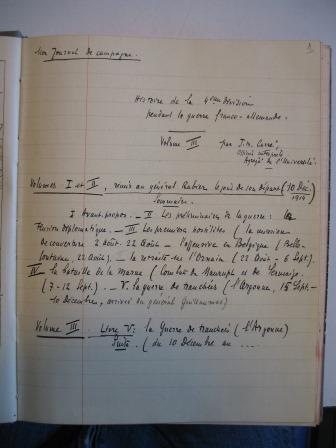 Mon Journal de campagne.
1
Histoire de la 4eme Division
pendant la guerre franco-allemande.
Volume III par J.M. Carré,
Officier interprète
Agrégé de l'Université.
Volumes I et II, remis au général Rabier le jour de son départ (10 Déc.
1914
Sommaire.
I Avant-propos. _ II Les préliminaires de la guerre : la
tension diplomatique. _ III Les premières hostilités (la mission
de couverture 2 août-22 août _ l'offensive en Belgique (Belle-
fontaine, 22 août). _ la retraite sur l'Ornain (22 août - 6 sept).
IV _ la bataille de la Marne (Combat de Maurupt et de Sermaize.
(7-12 sept.). _ V. la guerre de tranchées (l'Argonne, 15 Sept.-
10 Décembre, arrivée du général Guillaumat)
Volume III. Livre V. la Guerre de tranchées (l'Argonne)
Suite. (du 10 Décembre au ....